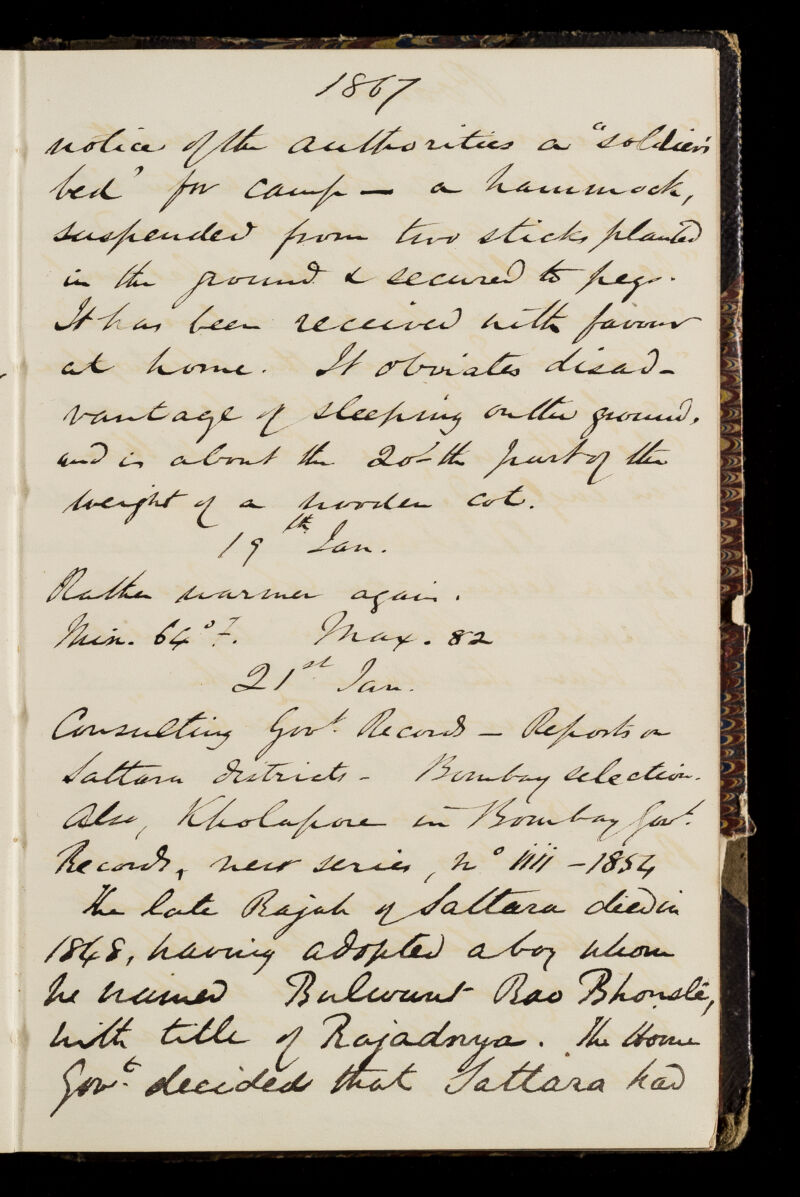 1867
notice of the authorities a "soldier's
bed" for camp — a hammock,
suspended from two sticks planted
in the ground & secured to pegs.
It has been received with favour
at home. It obviates disad-
vantage of sleeping on the ground,
and is about the 20th part of the
weight of a wooden cot.
19th Jan.
Rather warmer again.
Min. 64° F. Max. 82
21st Jan.
Consulting Govt. Records — Reports on
Sattara districts - Bombay selection.
Also, Kholapore in Bombay Govt.
Records, new series, No - 1854
The late Rajah of Sattara died in
1848, having adopted a boy whom
he named Bulwunt Rao Bhonslé,
with title of Rajadnya. The Home
Govt. decided that Sattara had